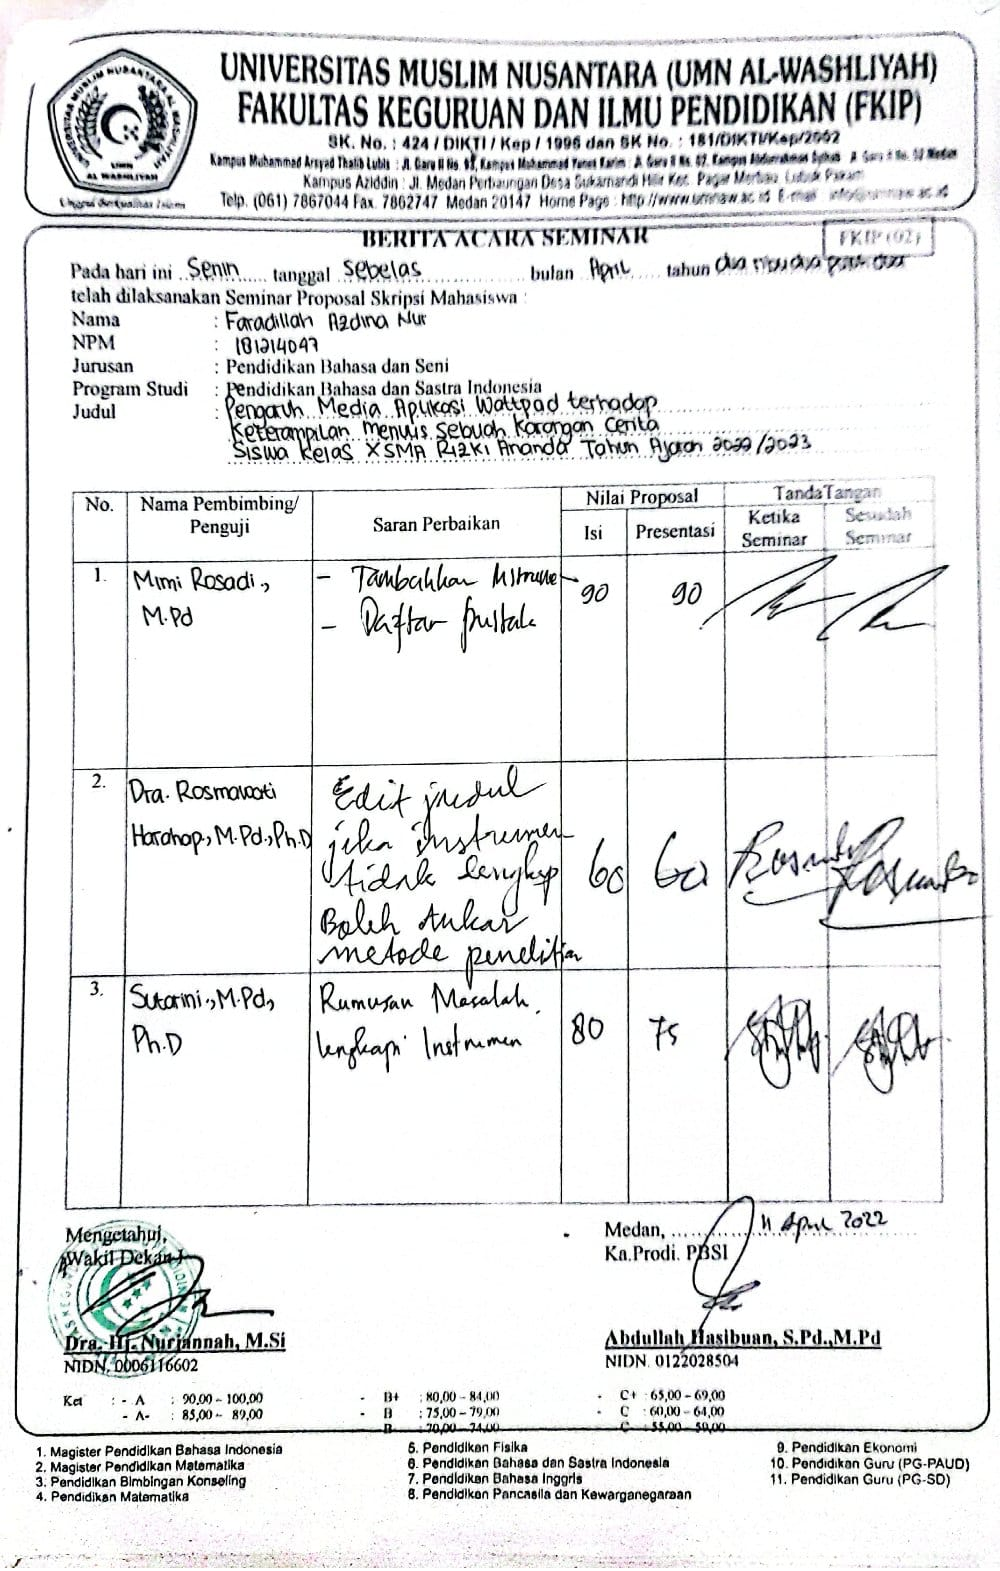 UNIVERSITAS MUSLIM NUSANTARA (UMN AL-WASHLIYAH)
FAKULTAS KEGURUAN DAN ILMU PENDIDIKAN (FKIP)
SK. No. : 424 / DIKTI / Kep / 1996 dan SK No. : 181/DIKTI/Kep/2002
Kampus Muhammad Arsyad Thalib Lubis : Jl. Garu II No. 93, Kampus Muhammad Yunus Karim : Jl. Garu II No. 02, Kampus Abdurrahman Syihab Jl. Garu II No. 52 Medan
Kampus Aziddin : Jl. Medan Perbaungan Desa Sukamandi Hilir Kec. Pagar Merbau Lubuk Pakam
Telp. (061) 7867044 Fax. 7862747 Medan 20147 Home Page : http://www.umnaw.ac.id E-mail
UNIVERSITAS MUSLIM NUSANTARA AL WASHLIYAH
UMN
AL WASHLIYAH
BERITA ACARA SEMINAR
FKIP (02)
Pada hari ini Senin tanggal Sebelas bulan April tahun dua ribu dua puluh dua
telah dilaksanakan Seminar Proposal Skripsi Mahasiswa :
Nama : Faradillah Azdina Nur
NPM : 181214047
Jurusan : Pendidikan Bahasa dan Seni
Program Studi : Pendidikan Bahasa dan Sastra Indonesia
Judul : Pengaruh Media Aplikasi Wattpad terhadap
Keterampilan Menulis Sebuah Karangan Cerita
Siswa Kelas X SMA Rizki Ananda Tahun Ajaran 2022/2023
No. Nama Pembimbing/ Penguji Saran Perbaikan Nilai Proposal TandaTangan
Isi Presentasi Ketika Seminar Sesudah Seminar
1. Mimi Rosadi., - Tambahkan 90 90
M.Pd - Daftar pustaka
2. Dra. Rosmawati Edit judul
Harahap., M.Pd., Ph.D jika instrumen
tidak lengkap 60 60
Boleh tukar
metode penelitian
3. Sutarini., M.Pd., Rumusan Masalah. 80 75
Ph.D lengkapi Instrumen
Mengetahui,
Wakil Dekan I
Dra. Hj. Nurjannah, M.Si
NIDN. 0006116602
Medan, 11 April 2022
Ka.Prodi. PBSI
Abdullah Hasibuan, S.Pd.,M.Pd
NIDN. 0122028504
Ket : - A : 90,00 – 100,00 - B+ : 80,00 – 84,00 - C+ : 65,00 – 69,00
- A- : 85,00 – 89,00 - B : 75,00 – 79,00 - C : 60,00 – 64,00
B- : 70,00 – 74,00 C- : 55,00 – 59,00
1. Magister Pendidikan Bahasa Indonesia
2. Magister Pendidikan Matematika
3. Pendidikan Bimbingan Konseling
4. Pendidikan Matematika
5. Pendidikan Fisika
6. Pendidikan Bahasa dan Sastra Indonesia
7. Pendidikan Bahasa Inggris
8. Pendidikan Pancasila dan Kewarganegaraan
9. Pendidikan Ekonomi
10. Pendidikan Guru (PG-PAUD)
11. Pendidikan Guru (PG-SD)